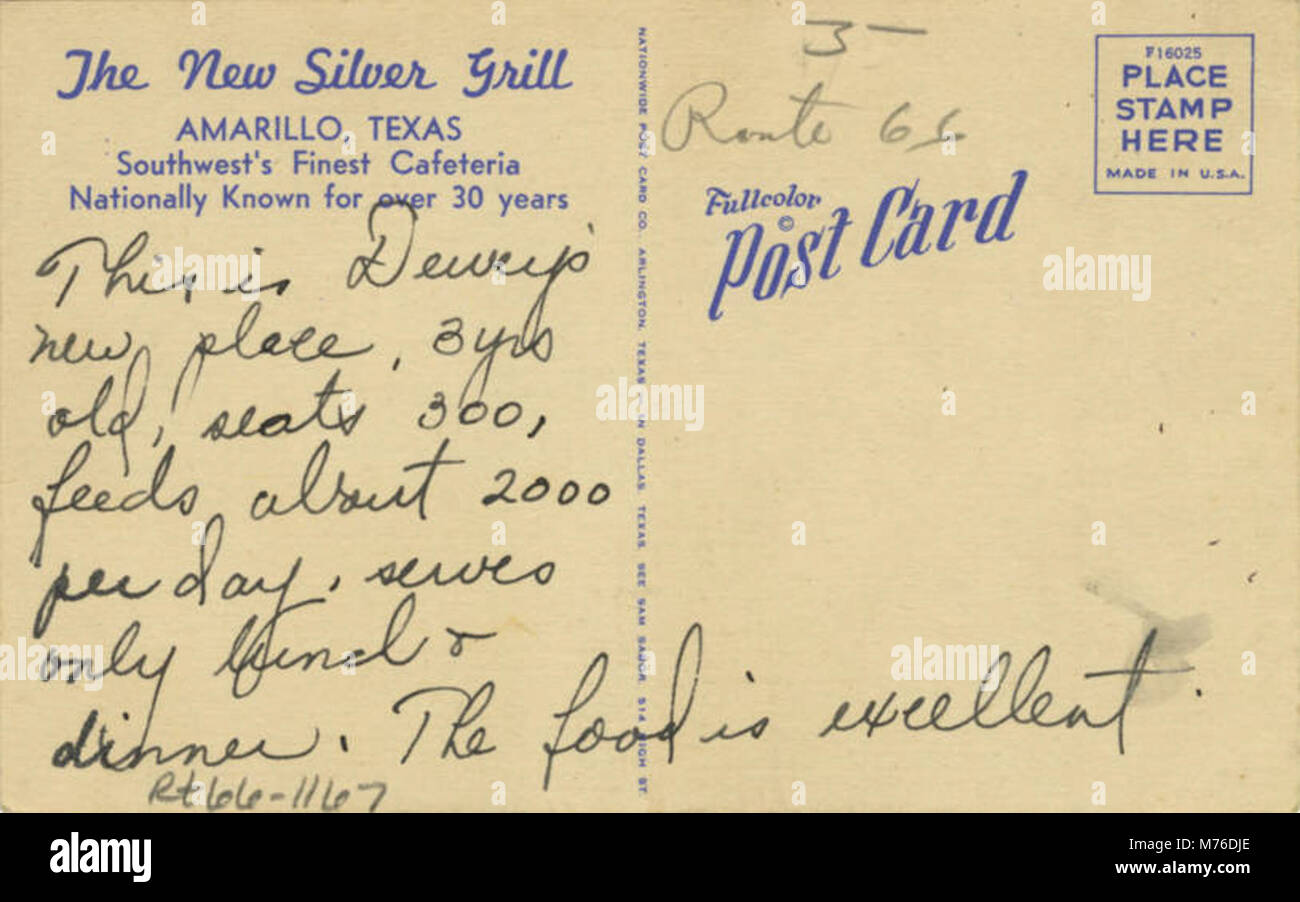 The New Silver Grill
AMARILLO, TEXAS
Southwest's Finest Cafeteria
Nationally Known for over 30 years
This is Dewey's
new place, 3 yrs
old, seats 300,
feeds about 2000
per day. serves
only &
dinner. The food is excellent.
Rt66-1167
NATIONWIDE POST CARD CO. ARLINGTON, TEXAS IN DALLAS, TEXAS, SEE SAM 514 HIGH ST.
3 —
Route 66
Fullcolor
©
Post Card
F16025
PLACE
STAMP
HERE
MADE IN U.S.A.
alamy
alamy
Image ID: M76DJE
www.alamy.com